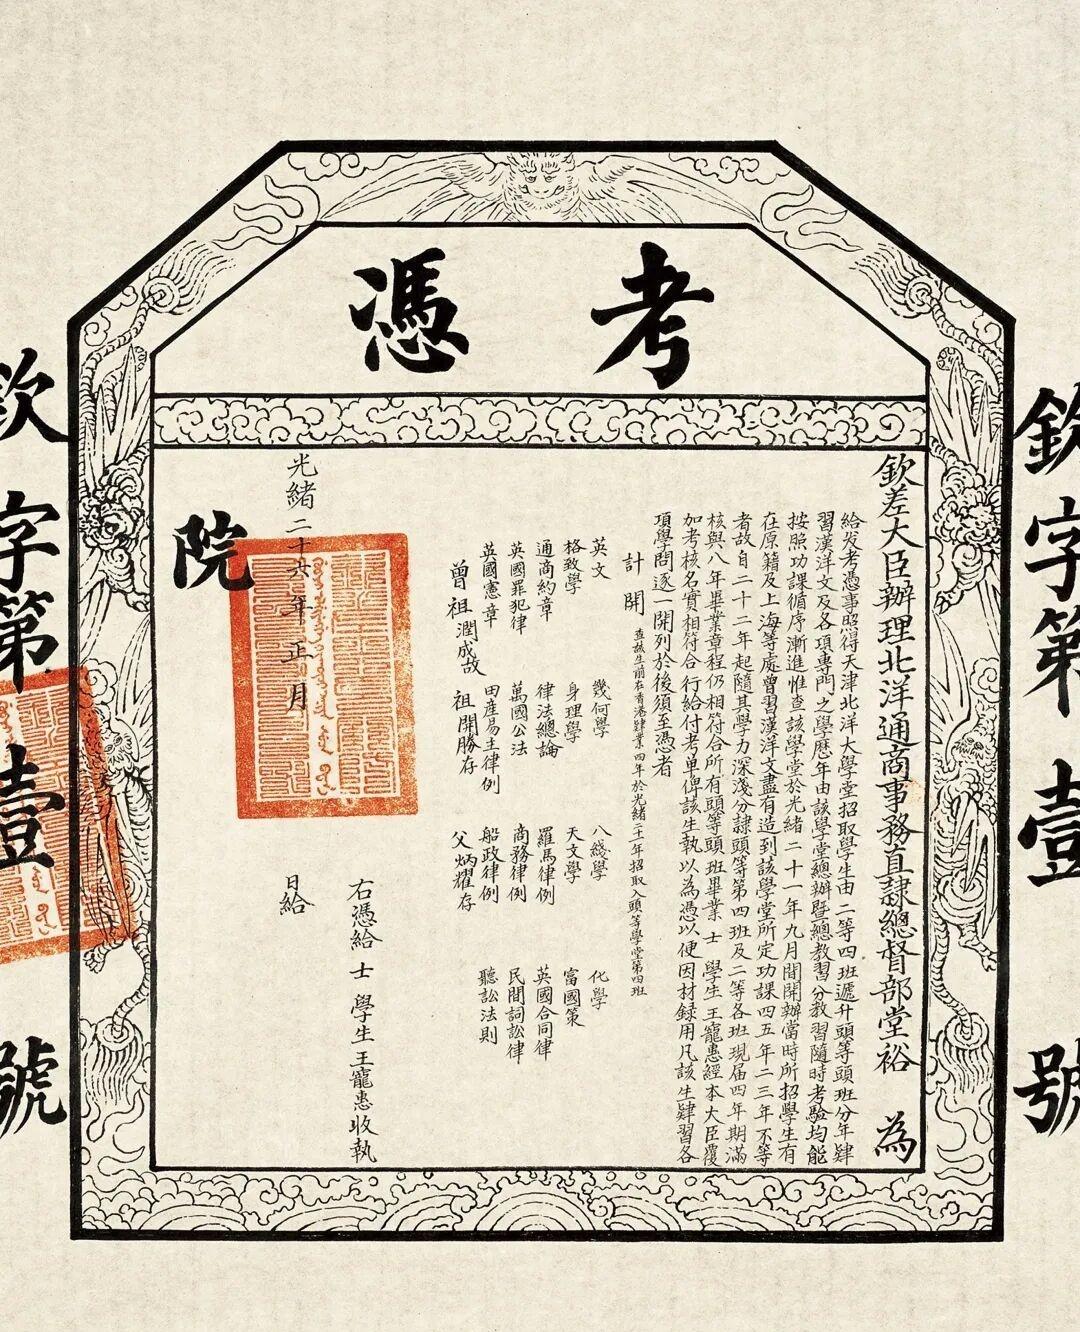 考憑
欽字第壹號
欽差大臣辦理北洋通商事務直隸總督部堂裕 為
給發考憑事照得天津北洋大學堂招取學生由二等四班遞升頭等頭班分年肄
習漢洋文及各項專門之學歷年由該學堂總辦暨總教習分教習隨時考驗均能
按照功課循序漸進惟查該學堂於光緒二十一年九月間開辦當時所招學生有
在原籍及上海等處曾習漢洋文盡有造到該學堂所定功課四五年二三年不等
者故自二十二年起隨其學力深淺分隸頭等第四班及二等各班現屆四年期滿
核與八年畢業章程仍相符合所有頭等頭班畢業 士 學生王寵惠經本大臣覆
加考核名實相符合行給付考單俾該生執以為憑以便因材録用凡該生肄習各
項學問逐一開列於後須至憑者
計開 查該生前在香港肄業四年於光緒二十一年招取入頭等學堂第四班
英文 幾何學 八綫學 化學
格致學 身理學 天文學 富國策
通商約章 律法總論 羅馬律例 英國合同律
英國罪犯律 萬國公法 商務律例 民間詞訟律
英國憲章 田產易主律例 船政律例 聽訟法則
曾祖潤成故 祖開勝存 父炳耀存
右憑給 士 學生王寵惠收執
光緒二十六年正月 日給
院
欽字第壹號